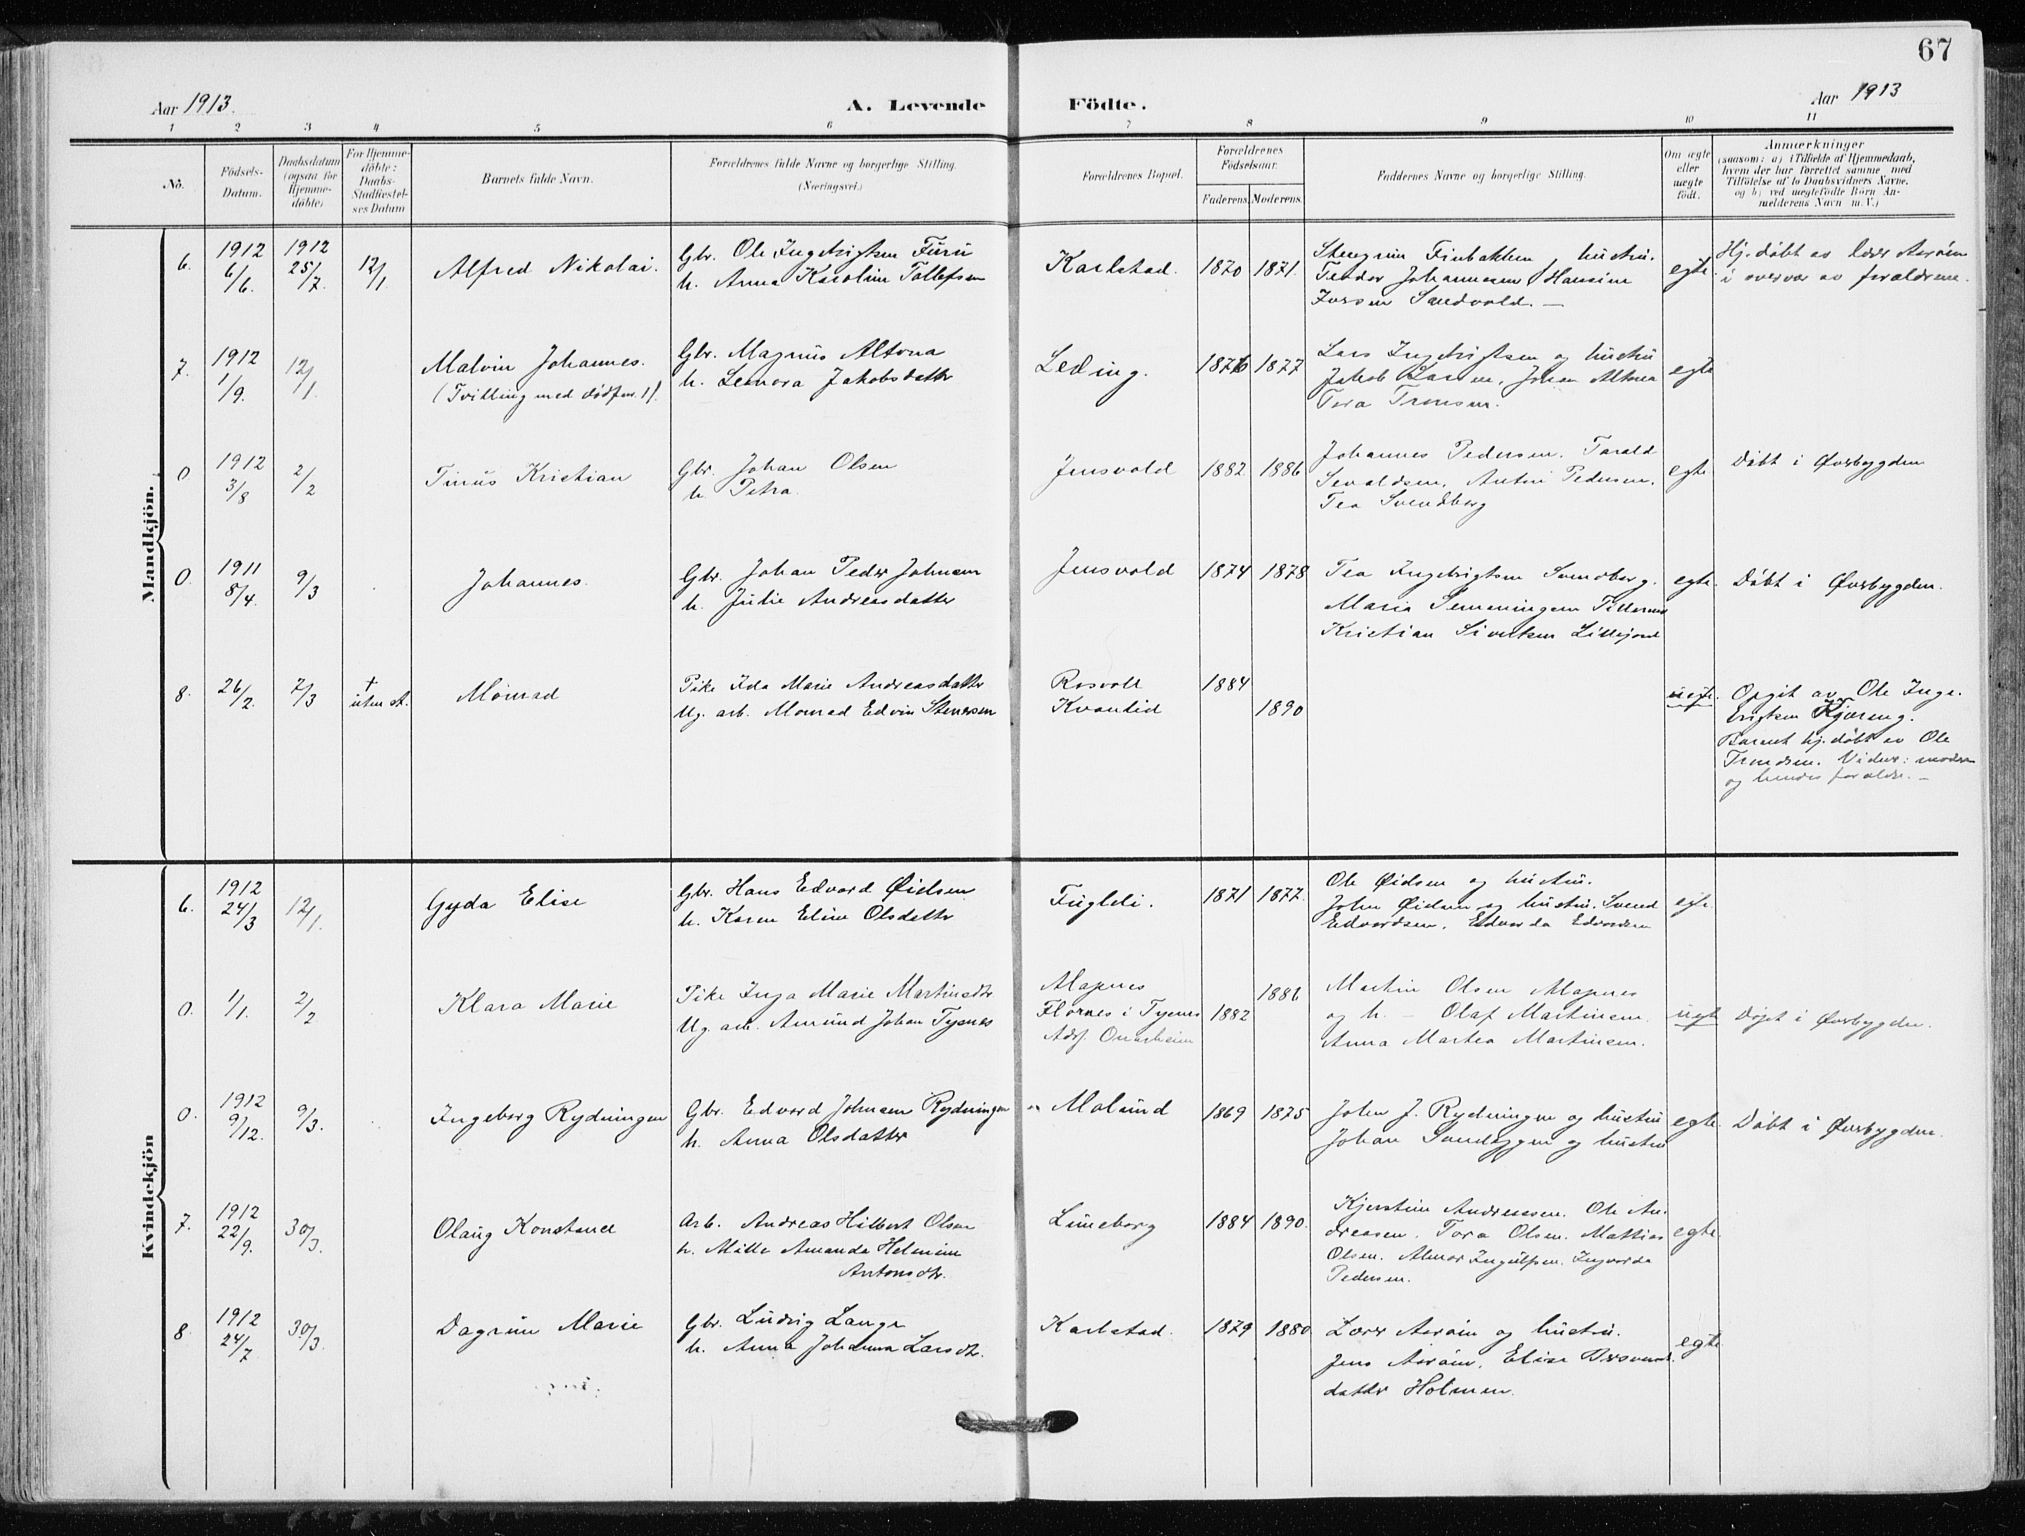 67
Aar 1913.
A. Levende Födte.
Aar 1913
1 2 3 4 5 6 7 8 9 10 11
No.
Födsels-Datum.
Daabsdatum (ogsaa for Hjemme-döbte)
For Hjemme-döbte: Daabs-Stadfæstel-ses Datum
Barnets fulde Navn.
Forældrenes fulde Navne og borgerlige Stilling. (Næringsvei.)
Forældrenes Bopæl.
Forældrenes Födselsaar.
Faderens. Moderens.
Faddernes Navne og borgerlige Stilling.
Om ægte eller uægte födt.
Anmærkninger
(saasom: a) i Tilfælde af Hjemmedaab,
hvem der har forrettet samme, med
Tilföielse af to Daabsvidners Navne,
og b) ved uægtefödte Börn An-
melderens Navn m. V.)
Mandkjön.
6. 1912 6/6. 1912 25/7. 12/1 Alfred Nikolai.
Gbr. Ole Ingebrigtsen Furu
h. Anna Karoline Tollefsen
Karlstad. 1870 1871.
Steingrim Finbakken, hustru.
Teodor Johannesen, Hansine
Iversen Sandvold. —
egte
Hj. døbt av lærer Aarøen
i overvær av forældrene.
7. 1912 1/9. 12/1. Malvin Johannes.
(Tvilling med dødfød 1).
Gbr. Magnus Altona
h. Leonora Jakobsdatter
Leding. 1876 1877
Lars Ingebrigtsen og hustru
Jakob Larsen, Johan Altona
Tora Tronsen.
egte
0 1912 3/8 2/2 Tinus Kristian
Gbr. Johan Olsen
h. Petra.
Jensvold 1882 1886
Johannes Pedersen. Tarald
Sevaldsen. Antin Pedersen.
Tea Svendberg
egte.
Døbt i Øverbygden
0. 1911 8/4. 9/3 Johannes.
Gbr. Johan Peder Johnsen
h. Julie Andreasdatter
Jensvold 1874 1878
Tea Ingebrigtsen Svendberg.
Maria Simeningsen
Kristian Sivertsen Lillejord
egte.
Døbt i Øverbygden.
8. 26/2. 7/3 † uten st. Monrad
Pike Ida Marie Andreasdatter
Ug. arb. Monrad Edvin Stenersen
Rosvoll 1884
Kvantid 1890
uegte.
Opgit av Ole Inge-
brigtsen Kjæreng.
Barnet hj. døbt av Ole
Trondsen. Vidner: moderen
og hendes forældre. —
Kvindekjön
6. 1912 24/3 12/1. Gyda Elise
Gbr. Hans Edvard Øidsen
h. Karen Eline Olsdatter
Fugleli. 1871 1877.
Ole Øidsen og hustru.
John Øidsen og hustru. Svend
Edvardsen. Edvarda Edvardsen
egte.
0. 1/1. 2/2 Klara Marie
Pike Inga Marie Martinsdtr
Ug. arb. Amund Johan Tysnes
Alapnes 1886
Flornes i Tysnes 1882
Adr. Onarheim
Martin Olsen Alapnes
og h. – Olaf Martinsen.
Anna Martea Martinsen.
uegte
Døpt i Øverbygden.
0. 1912 9/12. 9/3. Ingeborg Rydningen
Gbr. Edvard Johnsen Rydningen
h. Anna Olsdatter
Molund 1869 1875
John J. Rydningen og hustru
Johan Sundeggen og hustru
egte.
Døbt i Øverbygden.
7. 1912 22/9. 30/3. Olaug Konstance
Arb. Andreas Hilbert Olsen
h. Mille Amanda Helmine
Antonsdtr.
Luneborg 1884 1890.
Kjerstine Andreassen. Ole An-
dreasen. Tora Olsen. Mattias
Olsen. Almar Ingulfsen. Ingvarda
Pedersen.
egte.
8. 1912 24/7 30/3. Dagrun Marie
Gbr. Ludvig Lange
h. Anna Johanna Larsdtr.
Karlstad. 1879 1880.
Lærer Aarøen og hustru.
Jens Aarøen. Elise
datter Holmen.
egte.